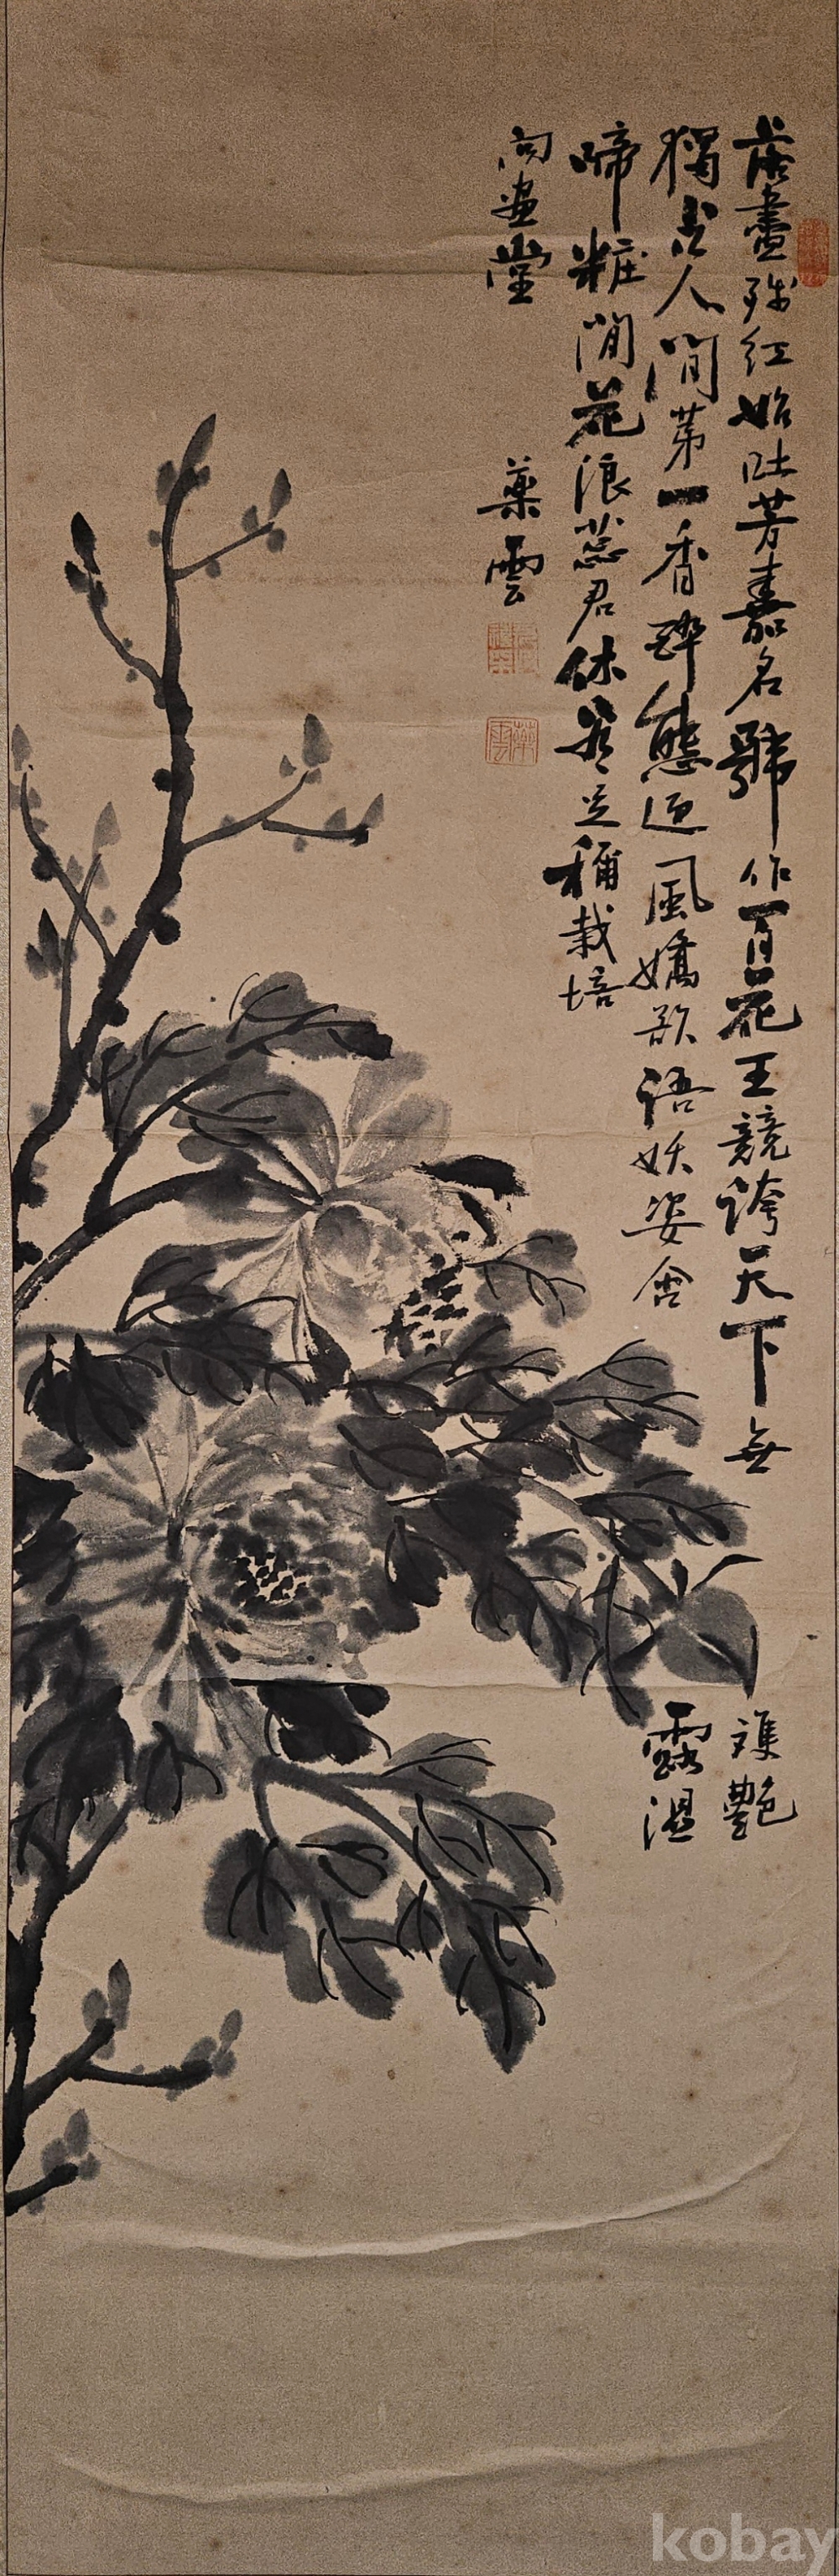 落盡殘紅始吐芳嘉名號作百花王競誇天下無雙艶
獨占人間第一香醉態迎風嬌欲語妖姿含露湿
啼粧閒花浪蕊君休稱栽培
向畫堂
藥雲
藥雲
kobay